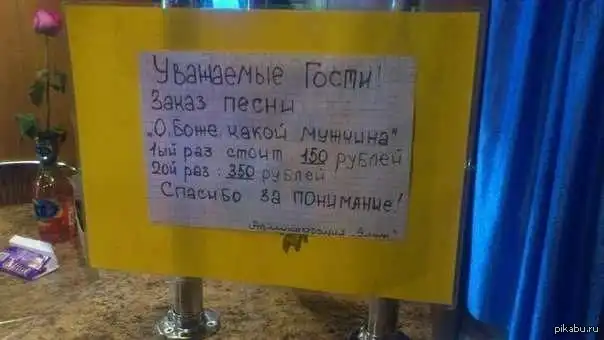 Уважаемые Гости!
Заказ песни
„О, Боже, какой мужчина"
1ый раз стоит 150 рублей
2ой раз : 350 рублей
Спасибо за понимание!
Администрация
pikabu.ru